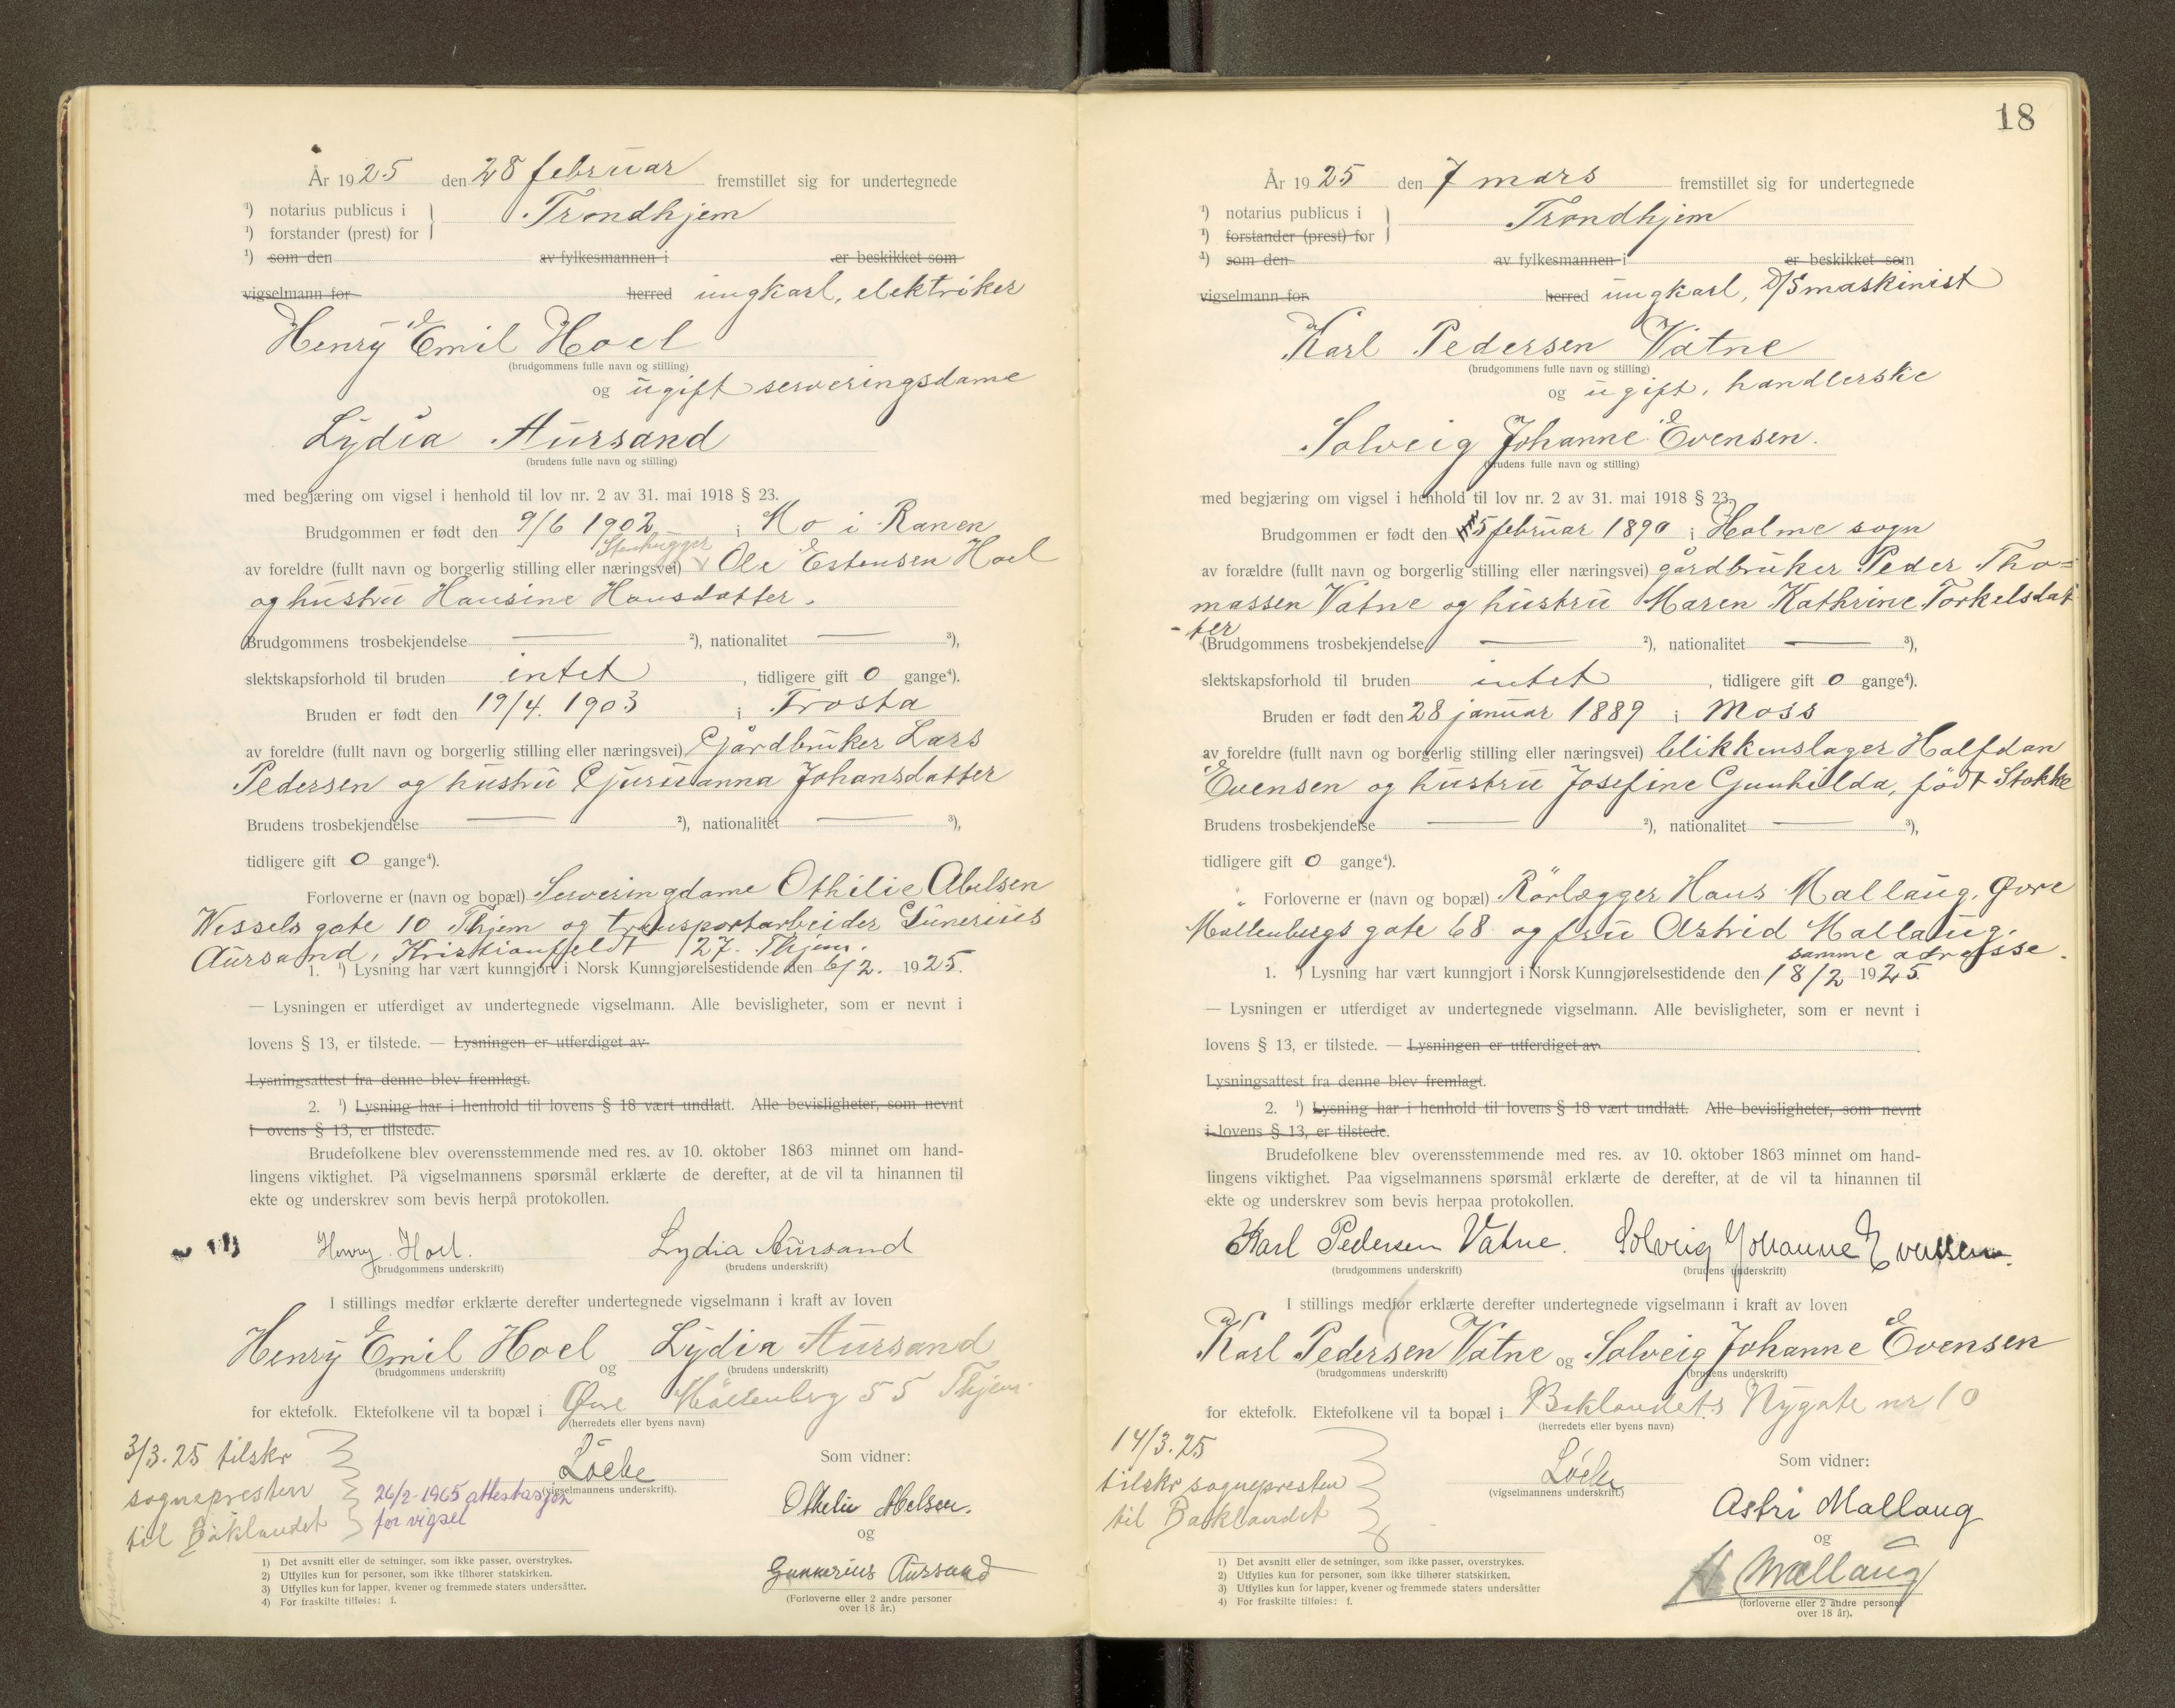 År 1925 den 28 februar fremstillet sig for undertegnede
¹) notarius publicus i
Trondhjem
¹) forstander (prest) for
¹) som den av fylkesmannen i er beskikket som
vigselmann for herred ungkarl, elektriker
Henry Emil Hoel
(brudgommens fulle navn og stilling)
og ugift serveringsdame
Lydia Aursand
(brudens fulle navn og stilling)
med begjæring om vigsel i henhold til lov nr. 2 av 31. mai 1918 § 23.
Brudgommen er født den 9/6 1902 i Mo i Ranen
Stenhugger
av foreldre (fullt navn og borgerlig stilling eller næringsvei) Ole Estensen Hoel
og hustru Hansine Hansdatter.
(Brudgommens trosbekjendelse — ²), nationalitet — ³),
slektskapsforhold til bruden intet, tidligere gift 0 gange⁴).
Bruden er født den 19/4. 1903 i Frosta
av foreldre (fullt navn og borgerlig stilling eller næringsvei) Gårdbruker Lars
Pedersen og hustru Gjuruanna Johansdatter
Brudens trosbekjendelse — ²), nationalitet — ³),
tidligere gift 0 gange⁴).
Forloverne er (navn og bopæl) Serveringdame Othilie Abelsen
Wessels gate 10 Thjem og transportarbeider Gunerius
Aursand, Kristianfeldt 127. Thjem.
1. ¹) Lysning har vært kunngjort i Norsk Kunngjørelsestidende den 6/2. 1925.
— Lysningen er utferdiget av undertegnede vigselmann. Alle bevisligheter, som er nevnt i
lovens § 13, er tilstede. — Lysningen er utferdiget av
Lysningsattest fra denne blev fremlagt.
2. ¹) Lysning har i henhold til lovens § 18 vært undlatt. Alle bevisligheter, som nevnt
i ovens § 13, er tilstede.
Brudefolkene blev overensstemmende med res. av 10. oktober 1863 minnet om hand-
lingens viktighet. På vigselmannens spørsmål erklærte de derefter, at de vil ta hinannen til
ekte og underskrev som bevis herpå protokollen.
Henry Hoel. Lydia Aursand
(brudgommens underskrift) (brudens underskrift)
I stillings medfør erklærte derefter undertegnede vigselmann i kraft av loven
Henry Emil Hoel og Lydia Aursand
(brudgommens underskrift) (brudens underskrift)
for ektefolk. Ektefolkene vil ta bopæl i Øvre Möllenberg 55 Thjem.
(herredets eller byens navn)
3/3.25 tilskr
sognepresten
til Baklandet
26/2-1965 attestasjon
for vigsel
Löche
(vigselmannens underskrift).
Som vidner:
Othelie Abelsen.
og
Gunnerius Aursand
(Forloverne eller 2 andre personer
over 18 år.)
1) Det avsnitt eller de setninger, som ikke passer, overstrykes.
2) Utfylles kun for personer, som ikke tilhører statskirken.
3) Utfylles kun for lapper, kvener og fremmede staters undersåtter.
4) For fraskilte tilføies: f.
18
År 1925 den 7 mars fremstillet sig for undertegnede
¹) notarius publicus i
Trondhjem
¹) forstander (prest) for
¹) som den av fylkesmannen i er beskikket som
vigselmann for herred ungkarl, D/S maskinist
Karl Pedersen Vatne
(brudgommens fulle navn og stilling)
og ugift, handlerske
Solveig Johanne Evensen.
(brudens fulle navn og stilling)
med begjæring om vigsel i henhold til lov nr. 2 av 31. mai 1918 § 23.
Brudgommen er født den 5 februar 1890 i Holme sogn
av forældre (fullt navn og borgerlig stilling eller næringsvei) gårdbruker Peder Tho=
massen Vatne og hustru Maren Kathrine Torkelsdat
-ter
(Brudgommens trosbekjendelse — ²), nationalitet — ³),
slektskapsforhold til bruden intet, tidligere gift 0 gange⁴).
Bruden er født den 28 januar 1889 i Moss
av foreldre (fullt navn og borgerlig stilling eller næringsvei) blikkenslager Halfdan
Evensen og hustru Josefine Gunhilda, født Stokke
Brudens trosbekjendelse — ²), nationalitet — ³),
tidligere gift 0 gange⁴).
Forloverne er (navn og bopæl) Rörlægger Hans Mallaug, Øvre
Møllenbergs gate 68 og fru Astrid Mallaug.
samme adresse.
1. ¹) Lysning har vært kunngjort i Norsk Kunngjørelsestidende den 18/2 1925.
— Lysningen er utferdiget av undertegnede vigselmann. Alle bevisligheter, som er nevnt i
lovens § 13, er tilstede. — Lysningen er utferdiget av
Lysningsattest fra denne blev fremlagt.
2. ¹) Lysning har i henhold til lovens § 18 vært undlatt. Alle bevisligheter, som nevnt
i lovens § 13, er tilstede.
Brudefolkene blev overensstemmende med res. av 10. oktober 1863 minnet om hand-
lingens viktighet. Paa vigselmannens spørsmål erklærte de derefter, at de vil ta hinannen til
ekte og underskrev som bevis herpaa protokollen.
Karl Pedersen Vatne. Solveig Johanne Evensen.
(brudgommens underskrift) (brudens underskrift)
I stillings medfør erklærte derefter undertegnede vigselmann i kraft av loven
Karl Pedersen Vatne og Solveig Johanne Evensen
(brudgommens underskrift) (brudens underskrift)
for ektefolk. Ektefolkene vil ta bopæl i Baklandets Nygate nr 10
(herredets eller byens navn)
14/3.25
tilskr sognepresten
til Baklandet
Löche
(vigselmannens underskrift.)
Som vidner:
Astri Mallaug
og
H Mallaug
(forloverne eller 2 andre personer
over 18 år).
1) Det avsnitt eller de setninger, som ikke passer, overstrykes.
2) Utfylles kun for personer, som ikke tilhører statskirken.
3) Utfylles kun for lapper, kvener og fremmede staters undersåtter
4) For fraskilte tilføies: f.